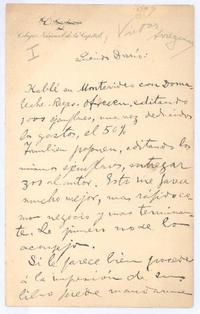 Colegio Nacional de la Capital
I
Querido Darío:
Hablé en Montevideo con Dorna
leche. Reyes. Ofrecen, editando
1000 ejemplares, una vez deducidos
los gastos, el 50%
Tambien proponen, editando los
mismos ejemplares, entregar
300 al autor. Esto me parece
mucho mejor, mas rápido co
mo negocio y mas terminan
te. Lo primero no se lo
aconsejo.
Si le parece bien proceda
á la impresión de su
libro puede mandarme